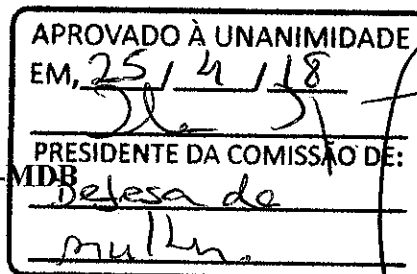 APROVADO À UNANIMIDADE
EM, 25 / 4 / 18
PRESIDENTE DA COMISSÃO DE:
-MDB
Defesa da
mulher